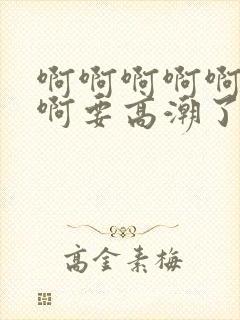 啊啊啊啊啊
啊要高潮了
高金素梅